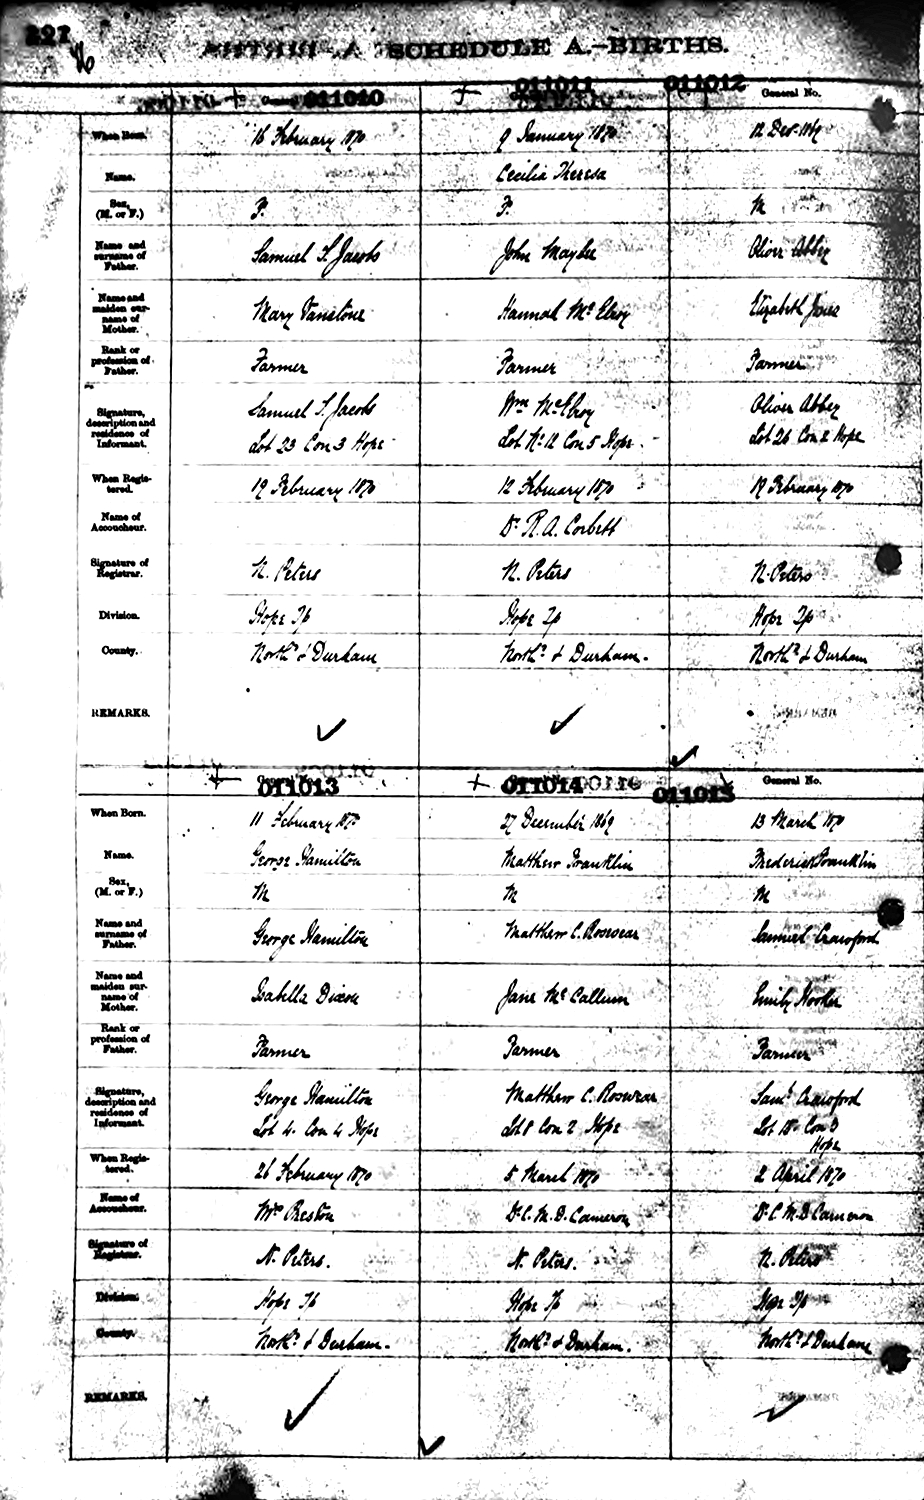 221
SCHEDULE A.—BIRTHS.
011010 011011 011012 General No.
When Born. 16 February 1870 9 January 1870 12 Dec 1869
Name. Cecilia Theresa
Sex, (M. or F.) F. F. M
Name and surname of Father. Samuel S. Jacobs John Maybee Oliver Abbey
Name and maiden surname of Mother. Mary Vanstone Hannah McElroy Elizabeth Jones
Rank or profession of Father. Farmer Farmer Farmer
Signature, description and residence of Informant. Samuel S. Jacobs Wm McElroy Oliver Abbey
Lot 23 Con 3 Hope Lot No. 12 Con 5 Hope Lot 26 Con 2 Hope
When Registered. 19 February 1870 12 February 1870 19 February 1870
Name of Accoucheur. Dr R. A. Corbett
Signature of Registrar. N. Peters N. Peters N. Peters
Division. Hope Tp Hope Tp Hope Tp
County. Northd & Durham Northd & Durham. Northd & Durham
REMARKS.
General No. 011013 011014 011015 General No.
When Born. 11 February 1870 27 December 1869 13 March 1870
Name. George Hamilton Matthew Franklin Frederick Franklin
Sex, (M. or F.) M M M
Name and surname of Father. George Hamilton Matthew C. Rosevear Samuel Crawford
Name and maiden surname of Mother. Isabella Dixon Jane McCallum Emily Hooker
Rank or profession of Father. Farmer Farmer Farmer
Signature, description and residence of Informant. George Hamilton Matthew C. Rosevear Saml Crawford
Lot 4. Con 4 Hope Lot 8 Con 2 Hope Lot 15 Con 3
Hope
When Registered. 26 February 1870 5 March 1870 2 April 1870
Name of Accoucheur. Mrs Preston Dr C. M. D. Cameron Dr C. M. D Cameron
Signature of Registrar. N. Peters. N. Peters. N. Peters
Division. Hope Tp Hope Tp Hope Tp
County. Northd & Durham. Northd & Durham. Northd & Durham
REMARKS.